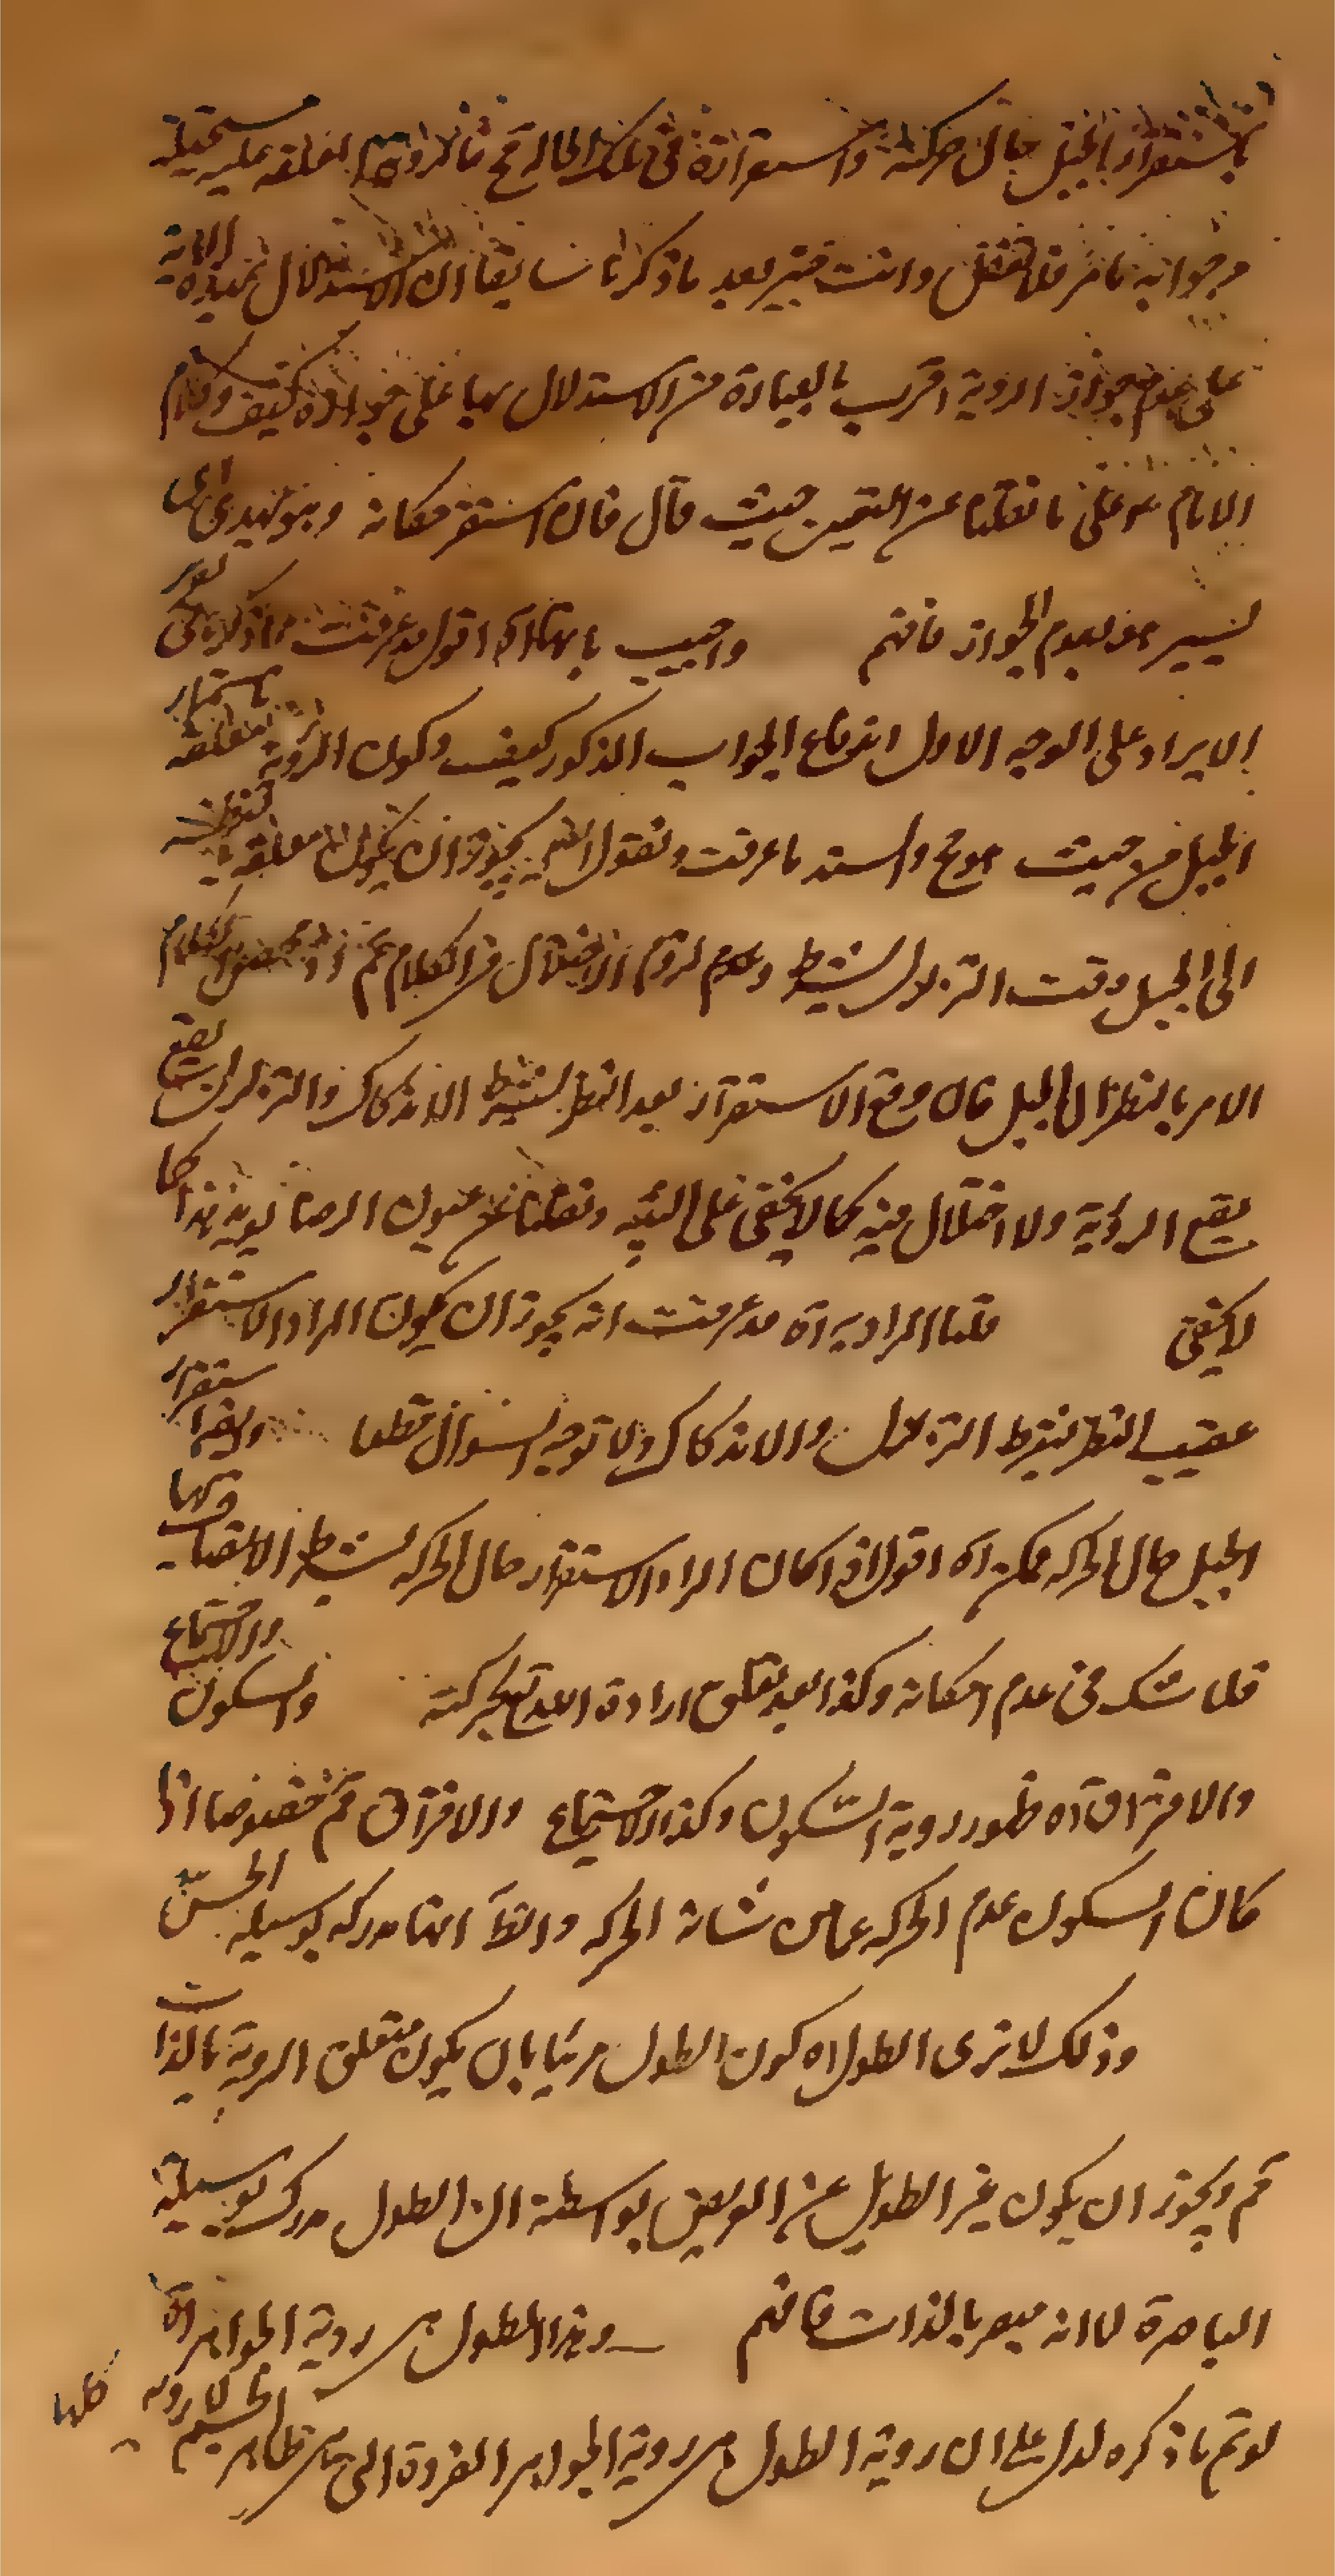 باستقرار الجبل حال حركته واستقراره فى تلك الحالة مح فالرؤية المعلقة عليه مستحيلة
وجوابه ما مر فلا تغفل وانت خبير بعد ما ذكرنا سابقا ان الاستدلال بهذه الاية
على عدم جواز الروية اقرب بالعبارة من الاستدلال بها على جوازه كيف وكلام
الامام ع على ما نقلنا عن العيون حيث قال فان استقر مكانه وهو يهدى الى
يسير هو بعدم الجواز فافهم واجيب بانها اه اقول قد عرفت مما ذكرنا فى
الايراد على الوجه الاول اندفاع الجواب المذكور كيف وكون الروية معلقة باستقرار
الجبل من حيث هو مح والسند ما عرفت ونقول انه يجوز ان يكون معلقة
الى الجبل وقت التزلزل بشرط وعدم لزوم الاختلال فى الكلام مم اذ محصول الكلام
الامر بالنظر الى الجبل فان وقع الاستقرار بعد النظر بشرط الاندكاك والتزلزل يقع
يقع الروية ولا اختلال فيه كما لا يخفى على النبيه ونقلنا عن عيون الرضا يويد هذا كما
لا يخفى قلنا المراد به اه قد عرفت انه يجوز ان يكون المراد الاستقرار
عقيب النظر بشرط التزلزل والاندكاك ولا توجه السؤال قطعا وايضا استقرار
الجبل حال الحركة ممكن اه اقول ان كان المراد الاستقرار حال الحركة بشرط الاتصاف بها
فلا شك فى عدم امكانه وكذا بعد تعلق ارادة الله تع بحركته والسكون
والافتراق اه ظهور روية السكون وكذا الاجتماع والافتراق مم خصوصا اذا
كان السكون عدم الحركة عما من شانه الحركة والظ انها مدركة بوسيلة الحس
وذلك لا ترى الطول اه كون الطول مرئيا بان يكون متعلق الروية بالذات
مم ويجوز ان يكون غير الطويل عن العريض بواسطة ان الطول مدرك بوسيلة
الباصرة لا انه مبصر بالذات فافهم وهذا الطول هى روية الجواهر اه
لو تم ما ذكره لدل على ان روية الطول هى روية الجواهر الفردة التى هى ظاهر الجسم لا روية كلها